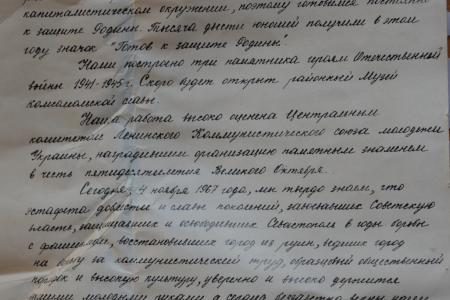 капиталистическом окружении, поэтому готовимся постоянно
к защите Родины. Тысяча двести юношей получили в этом
году значок "Готов к защите Родины".
Нами построено три памятника героям Отечественной
войны 1941-1945 г. Скоро будет открыт районный Музей
комсомольской славы.
Наша работа высоко оценена Центральным
комитетом Ленинского Коммунистического союза молодежи
Украины, наградившим организацию памятным знаменем
в честь пятидесятилетия Великого Октября.
Сегодня, 4 ноября 1967 года, мы твердо знаем, что
эстафета доблести и славы поколений, завоевавших Советскую
власть, защищавших и освободивших Севастополь в годы борьбы
с фашизмом, восстановивших город из руин, ведущих город
на борьбу за коммунистический труд, образцовый общественный
порядок и высокую культуру, уверенно и высоко держится
нашими молодыми руками, а сердца